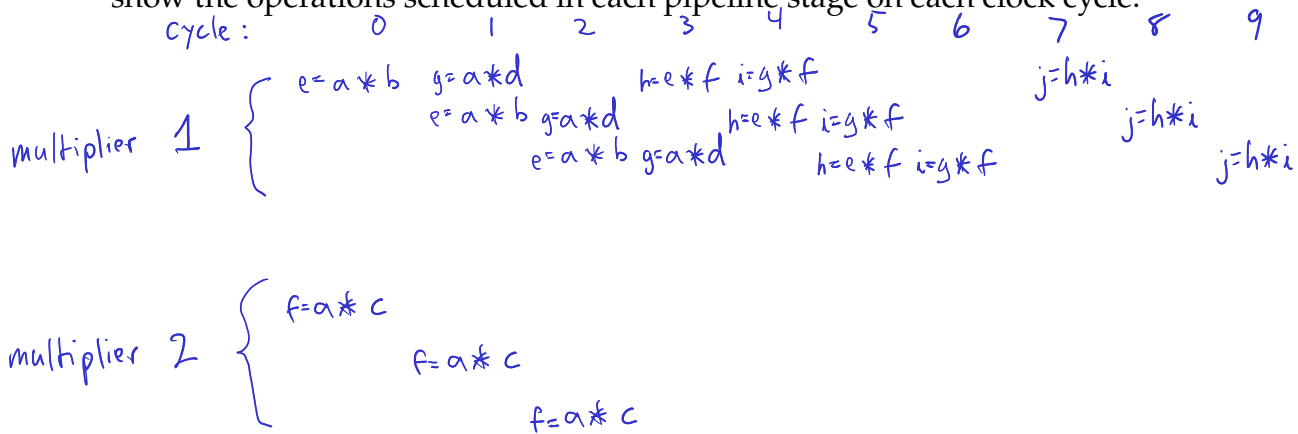 show the operations scheduled in each pipeline stage on each clock cycle.
cycle: 0 1 2 3 4 5 6 7 8 9
e=a*b g=a*d h=e*f i=g*f j=h*i
multiplier 1 e=a*b g=a*d h=e*f i=g*f j=h*i
e=a*b g=a*d h=e*f i=g*f j=h*i
f=a*c
multiplier 2 f=a*c
f=a*c